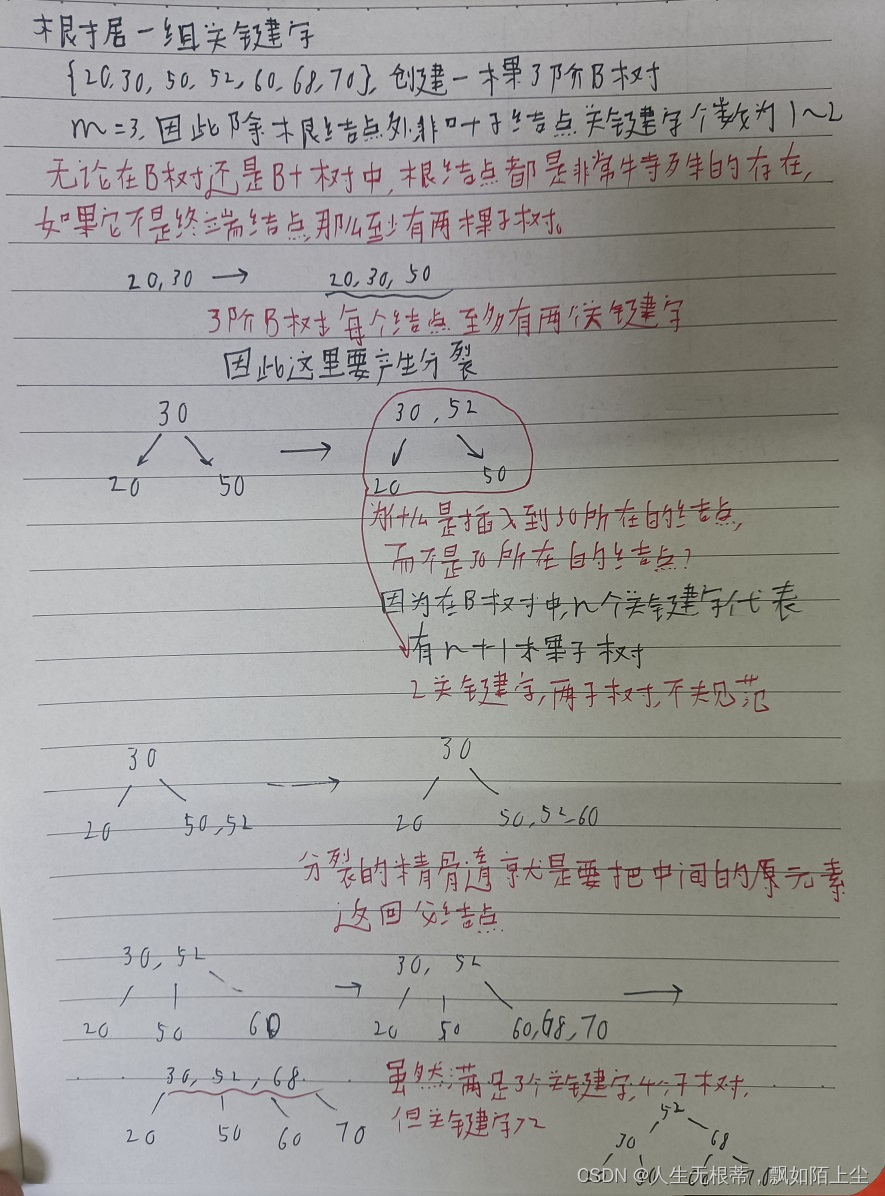 根据一组关键字
{20,30,50,52,60,68,70},创建一棵3阶B树
m=3,因此除根结点外,非叶子结点关键字个数为1~2
无论在B树还是B+树中,根结点都是非常特殊的存在,
如果它不是终端结点,那么至少有两棵子树。
20,30 → 20,30,50
3阶B树每个结点至多有两个关键字
因此这里要产生分裂
30 → 30,52
20 50 20 50
为什么是插入到50所在的结点,
而不是30所在的结点?
因为在B树中,n个关键字代表
有n+1棵子树
2关键字,两子树,不夫见范
30 → 30
20 50,52 20 50,52,60
分裂的精骨遗京尤是要把中间的原元素
返回父结点
30,52 → 30,52 →
20 50 60 20 50 60,68,70
30,52,68 虽然满足3个关键字,4个子树,
20 50 60 70 但关键字>2
52
30 68
CSDN @人生无根蒂,飘如陌上尘